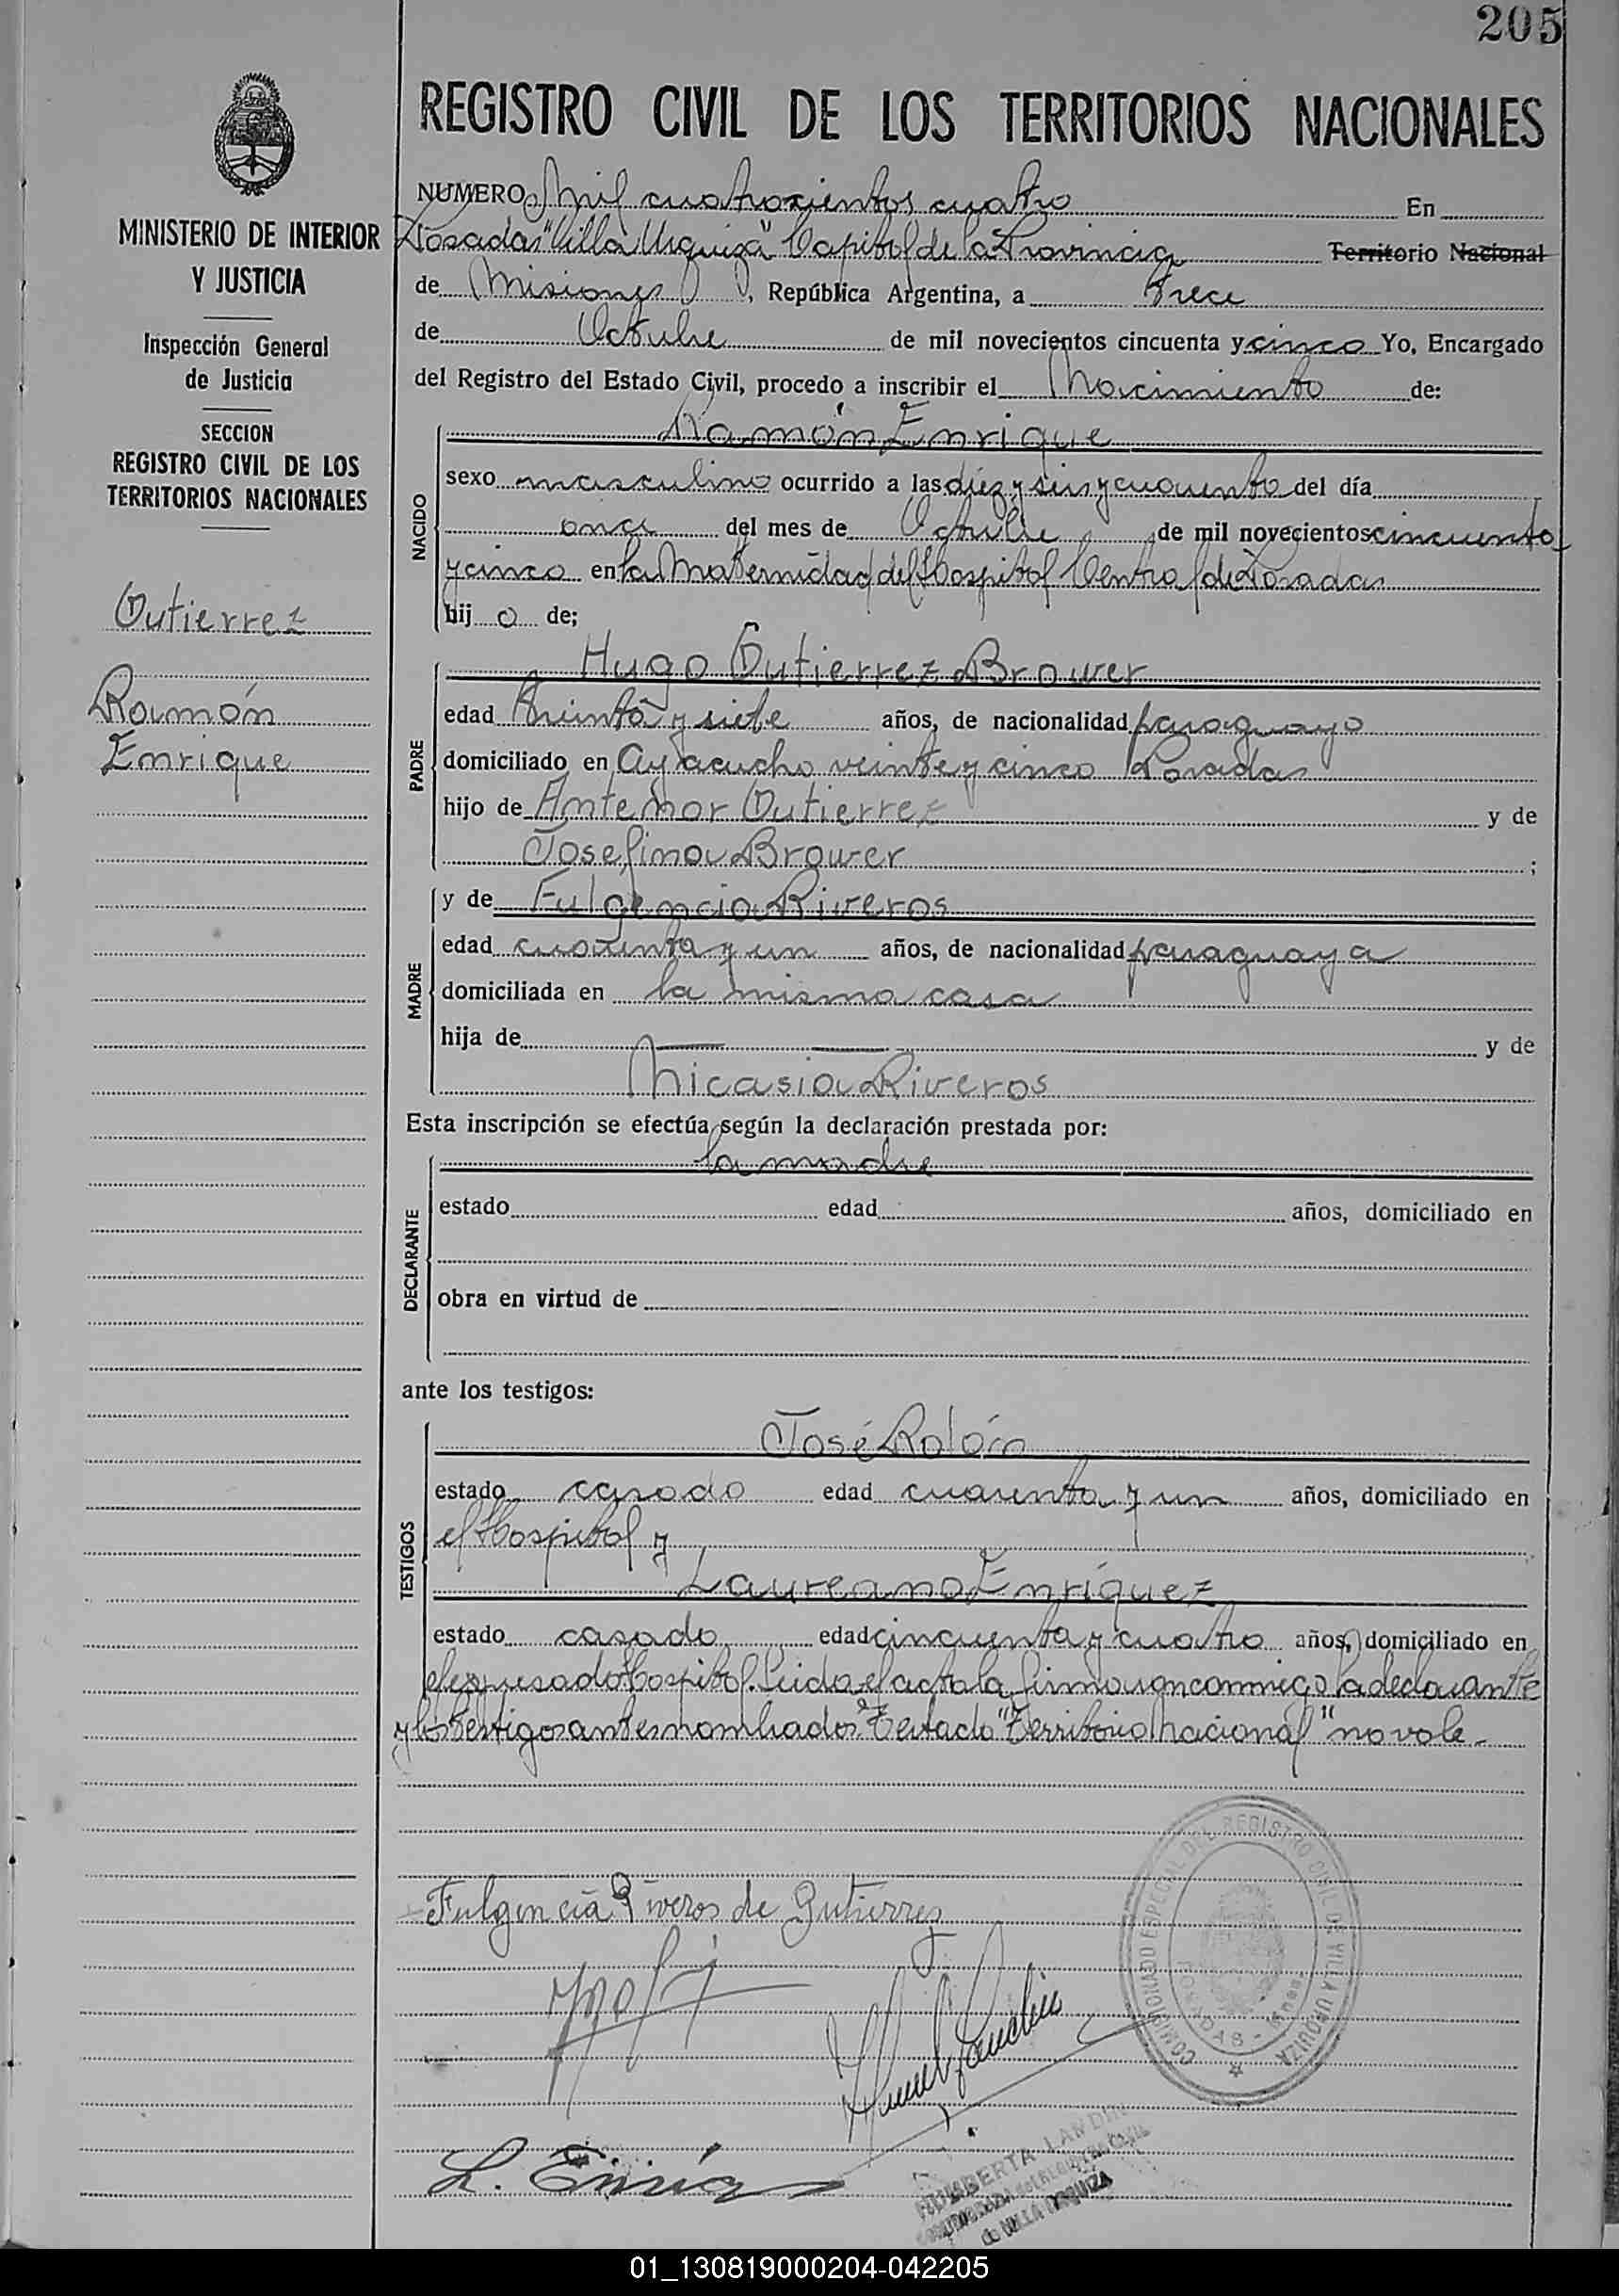 205
REGISTRO CIVIL DE LOS TERRITORIOS NACIONALES
MINISTERIO DE INTERIOR
Y JUSTICIA
Inspección General
de Justicia
SECCION
REGISTRO CIVIL DE LOS
TERRITORIOS NACIONALES
Gutierrez
Ramón
Enrique
NUMERO Mil cuatrocientos cuatro En
Posadas "Villa Urquiza" Capital de la Provincia Territorio Nacional
de Misiones, República Argentina, a trece
de Octubre de mil novecientos cincuenta y cinco Yo, Encargado
del Registro del Estado Civil, procedo a inscribir el Nacimiento de:
NACIDO
Ramón Enrique
sexo masculino ocurrido a las diez y seis y cuarenta del día
once del mes de Octubre de mil novecientos cincuenta
y cinco en la Maternidad del Hospital Central de Posadas
hij o de;
PADRE
Hugo Gutierrez Brower
edad treinta y siete años, de nacionalidad paraguayo
domiciliado en Ayacucho veinte y cinco Posadas
hijo de Antenor Gutierrez y de
Josefina Brower ;
MADRE
y de Fulgencia Riveros
edad cuarenta y un años, de nacionalidad paraguaya
domiciliada en la misma casa
hija de — — y de
Nicasia Riveros
Esta inscripción se efectúa según la declaración prestada por:
DECLARANTE
la madre
estado edad años, domiciliado en
obra en virtud de
ante los testigos:
TESTIGOS
José Rolón
estado casado edad cuarenta y un años, domiciliado en
el Hospital y
Laureano Enríquez
estado casado edad cincuenta y cuatro años, domiciliado en
el expresado Hospital. Leida el acta la firmaron conmigo la declarante
y los testigos antes nombrados. Testado "Territorio Nacional" no vale.
Fulgencia Riveros de Gutierrez
L. Enríq
COMISIONADO ESPECIAL DEL REGISTRO CIVIL DE VILLA URQUIZA
POSADAS - Mnes.
de VILLA URQUIZA
01_130819000204-042205